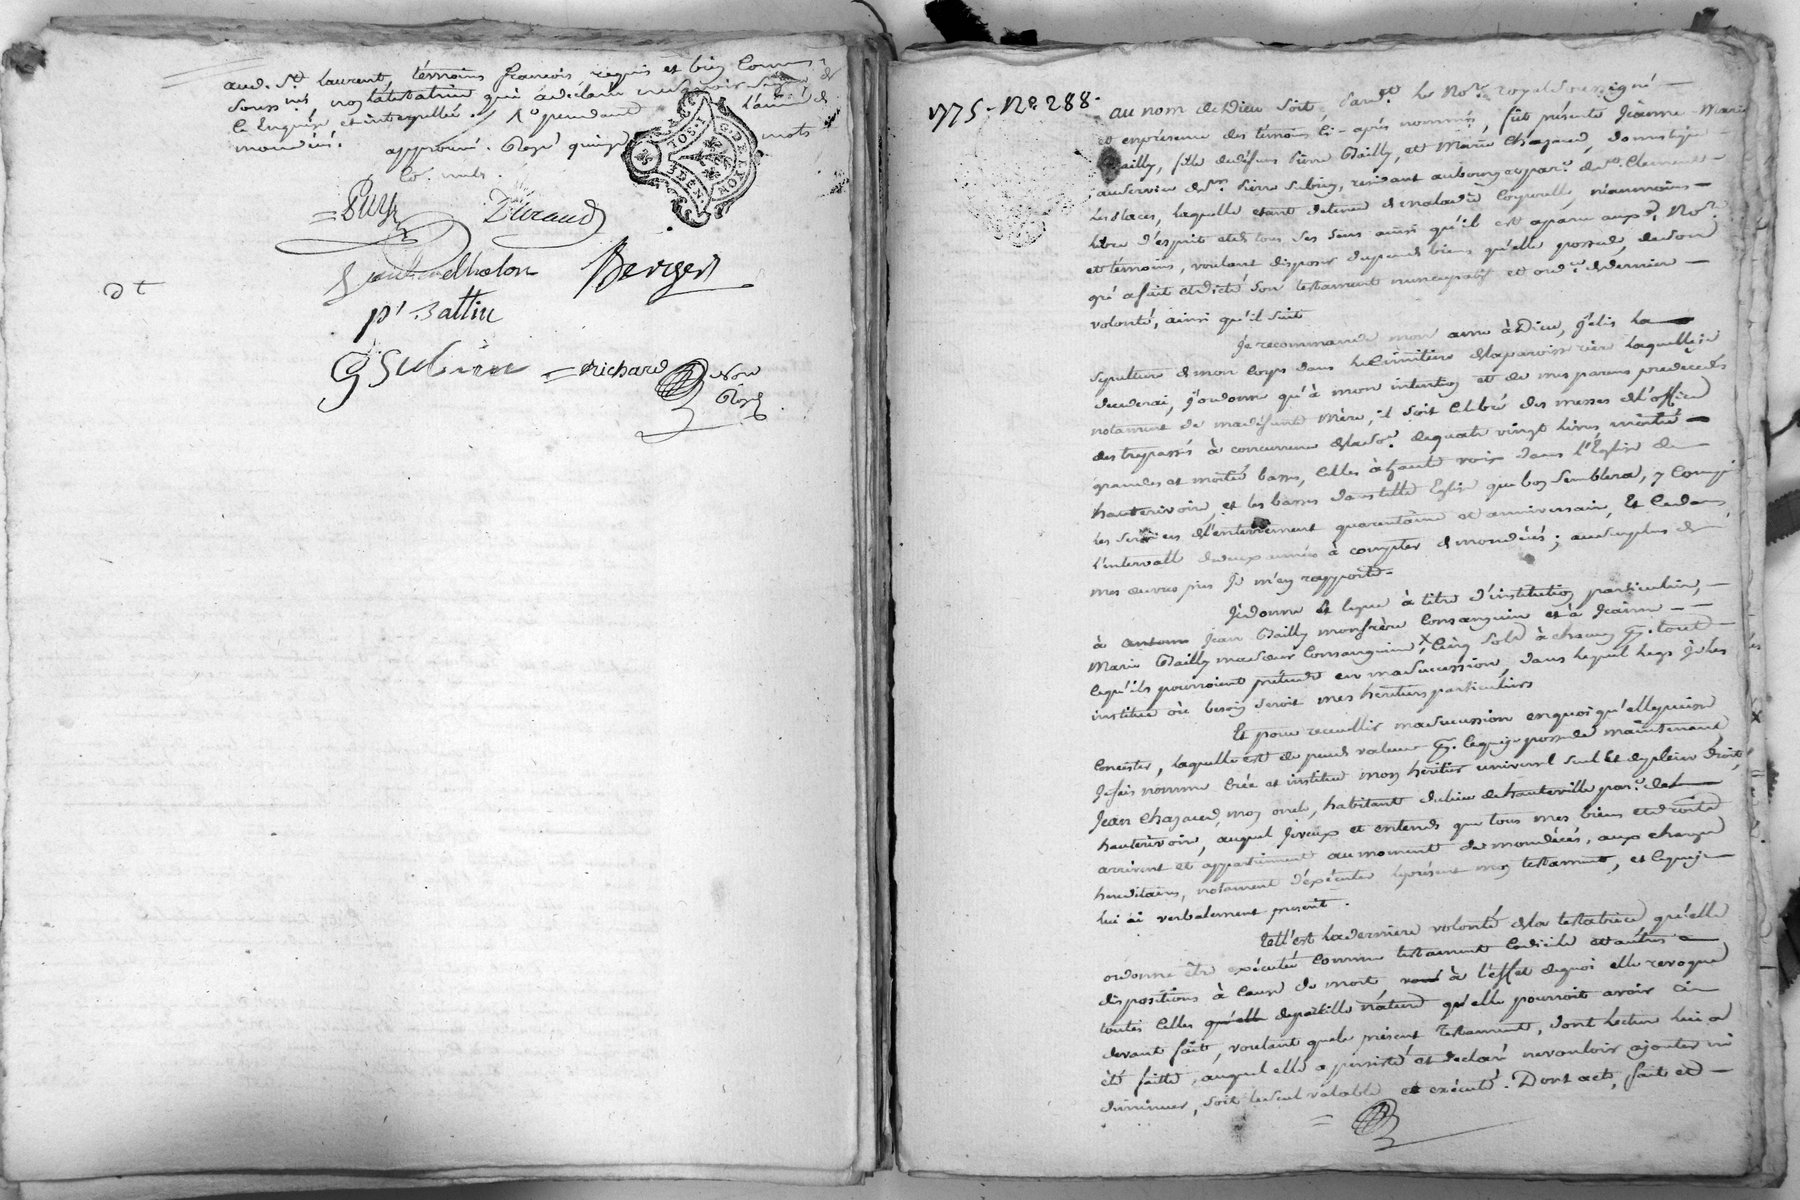 aud. St. laurent, témoins françois, requis et bien Connus
soussnés, non la testatrice qui a déclaré ne savoir signer de
ce Enquise et interpellée. /. cependant l'année de
mondécès. approuvé. Rayé quinze mots
Co. nuls.
Puy Durand
Berger
pr. Battin
G Subrin = Richard Nore
Royal
dt
G. DE LYON
1775. No. 288.
au nom de Dieu soit, Pardt. le Nore. royal soussigné
et en présence des témoins Ci-après nommés, fût présente Jeanne-Marie
Bailly, fille de défunt Pierre Bailly, et Marie Chazaud, domestique
au service de Sr. Pierre Subrin, résidant au bourg et parr. de St. Clement
les places, laquelle etant detenue de maladie Corporelle, néanmoins
libre d'esprit et de tous ses sens ainsi qu'il est aparu auxd. Nore.
et témoins, voulant disposer du peu de biens qu'elle possede, de son
gré a fait et dicté son testament nuncupatif et ordre. de derniere
volonté, ainsi qu'il suit
Je recommande mon ame à Dieu, j'elis la
sepulture de mon Corps dans le Cimitiere de la paroisse rière laquelle je
decederai, j'ordonne qu'à mon intention et de mes parens predecedés
notament de ma défunte Mère, il soit Celebré des messes de l'office
des trepassés à concurrence de la so. de quatre vingt livres, moitié
grandes et moitié basses, Celles à haute voix dans l'Eglise de
hauterivoire, et les basses dans telle Eglise que bon semblera, y Compris
les services d'enterrement quarantaine et anniversaire, Et Ce dans
l'intervalle de deux années à compter de mondécès; au surplus de
mes œuvres pies Je m'en rapporte.
Je donne et legue à titre d'institution particulière,
à Jean Bailly mon frère Consanguin et à Jeanne
Marie Bailly ma sœur Consanguine, Cinq sols à chacun pr. tout
Ce qu'ils pourroient prétendre en ma succession, dans lequel legs Je les
institue où besoin seroit mes heritiers particuliers
Et pour recueillir ma succession en quoi qu'elle puisse
Concister, laquelle est de peu de valeur pr. ce que je possede maintenant
Je fais nomme Crée et institue mon héritier universel seul et de plein droit,
Jean Chazaud, mon oncle, habitant du lieu de hauteville parr. de
hauterivoire, auquel je veux et entends que tous mes biens et droits
arrivent et appartiennent au moment de mondécès, aux charges
hereditaires, notament d'exécuter le présent mon testament, et ce que je
lui ai verbalement prescrit.
Tell'est la derniere volonté de la testatrice qu'elle
ordonne être exécutée Comme testament Codicile et autres
dispositions à Cause de mort, à l'effet de quoi elle revoque
toutes Celles de pareille nature qu'elle pourroit avoir Ci
devant fait, voulant que le présent Testament, dont lecture lui a
été faitte, auquel elle a persisté et declaré ne vouloir ajouter ni
diminuer, soit le seul valable et exécuté. Dont acte, fait et